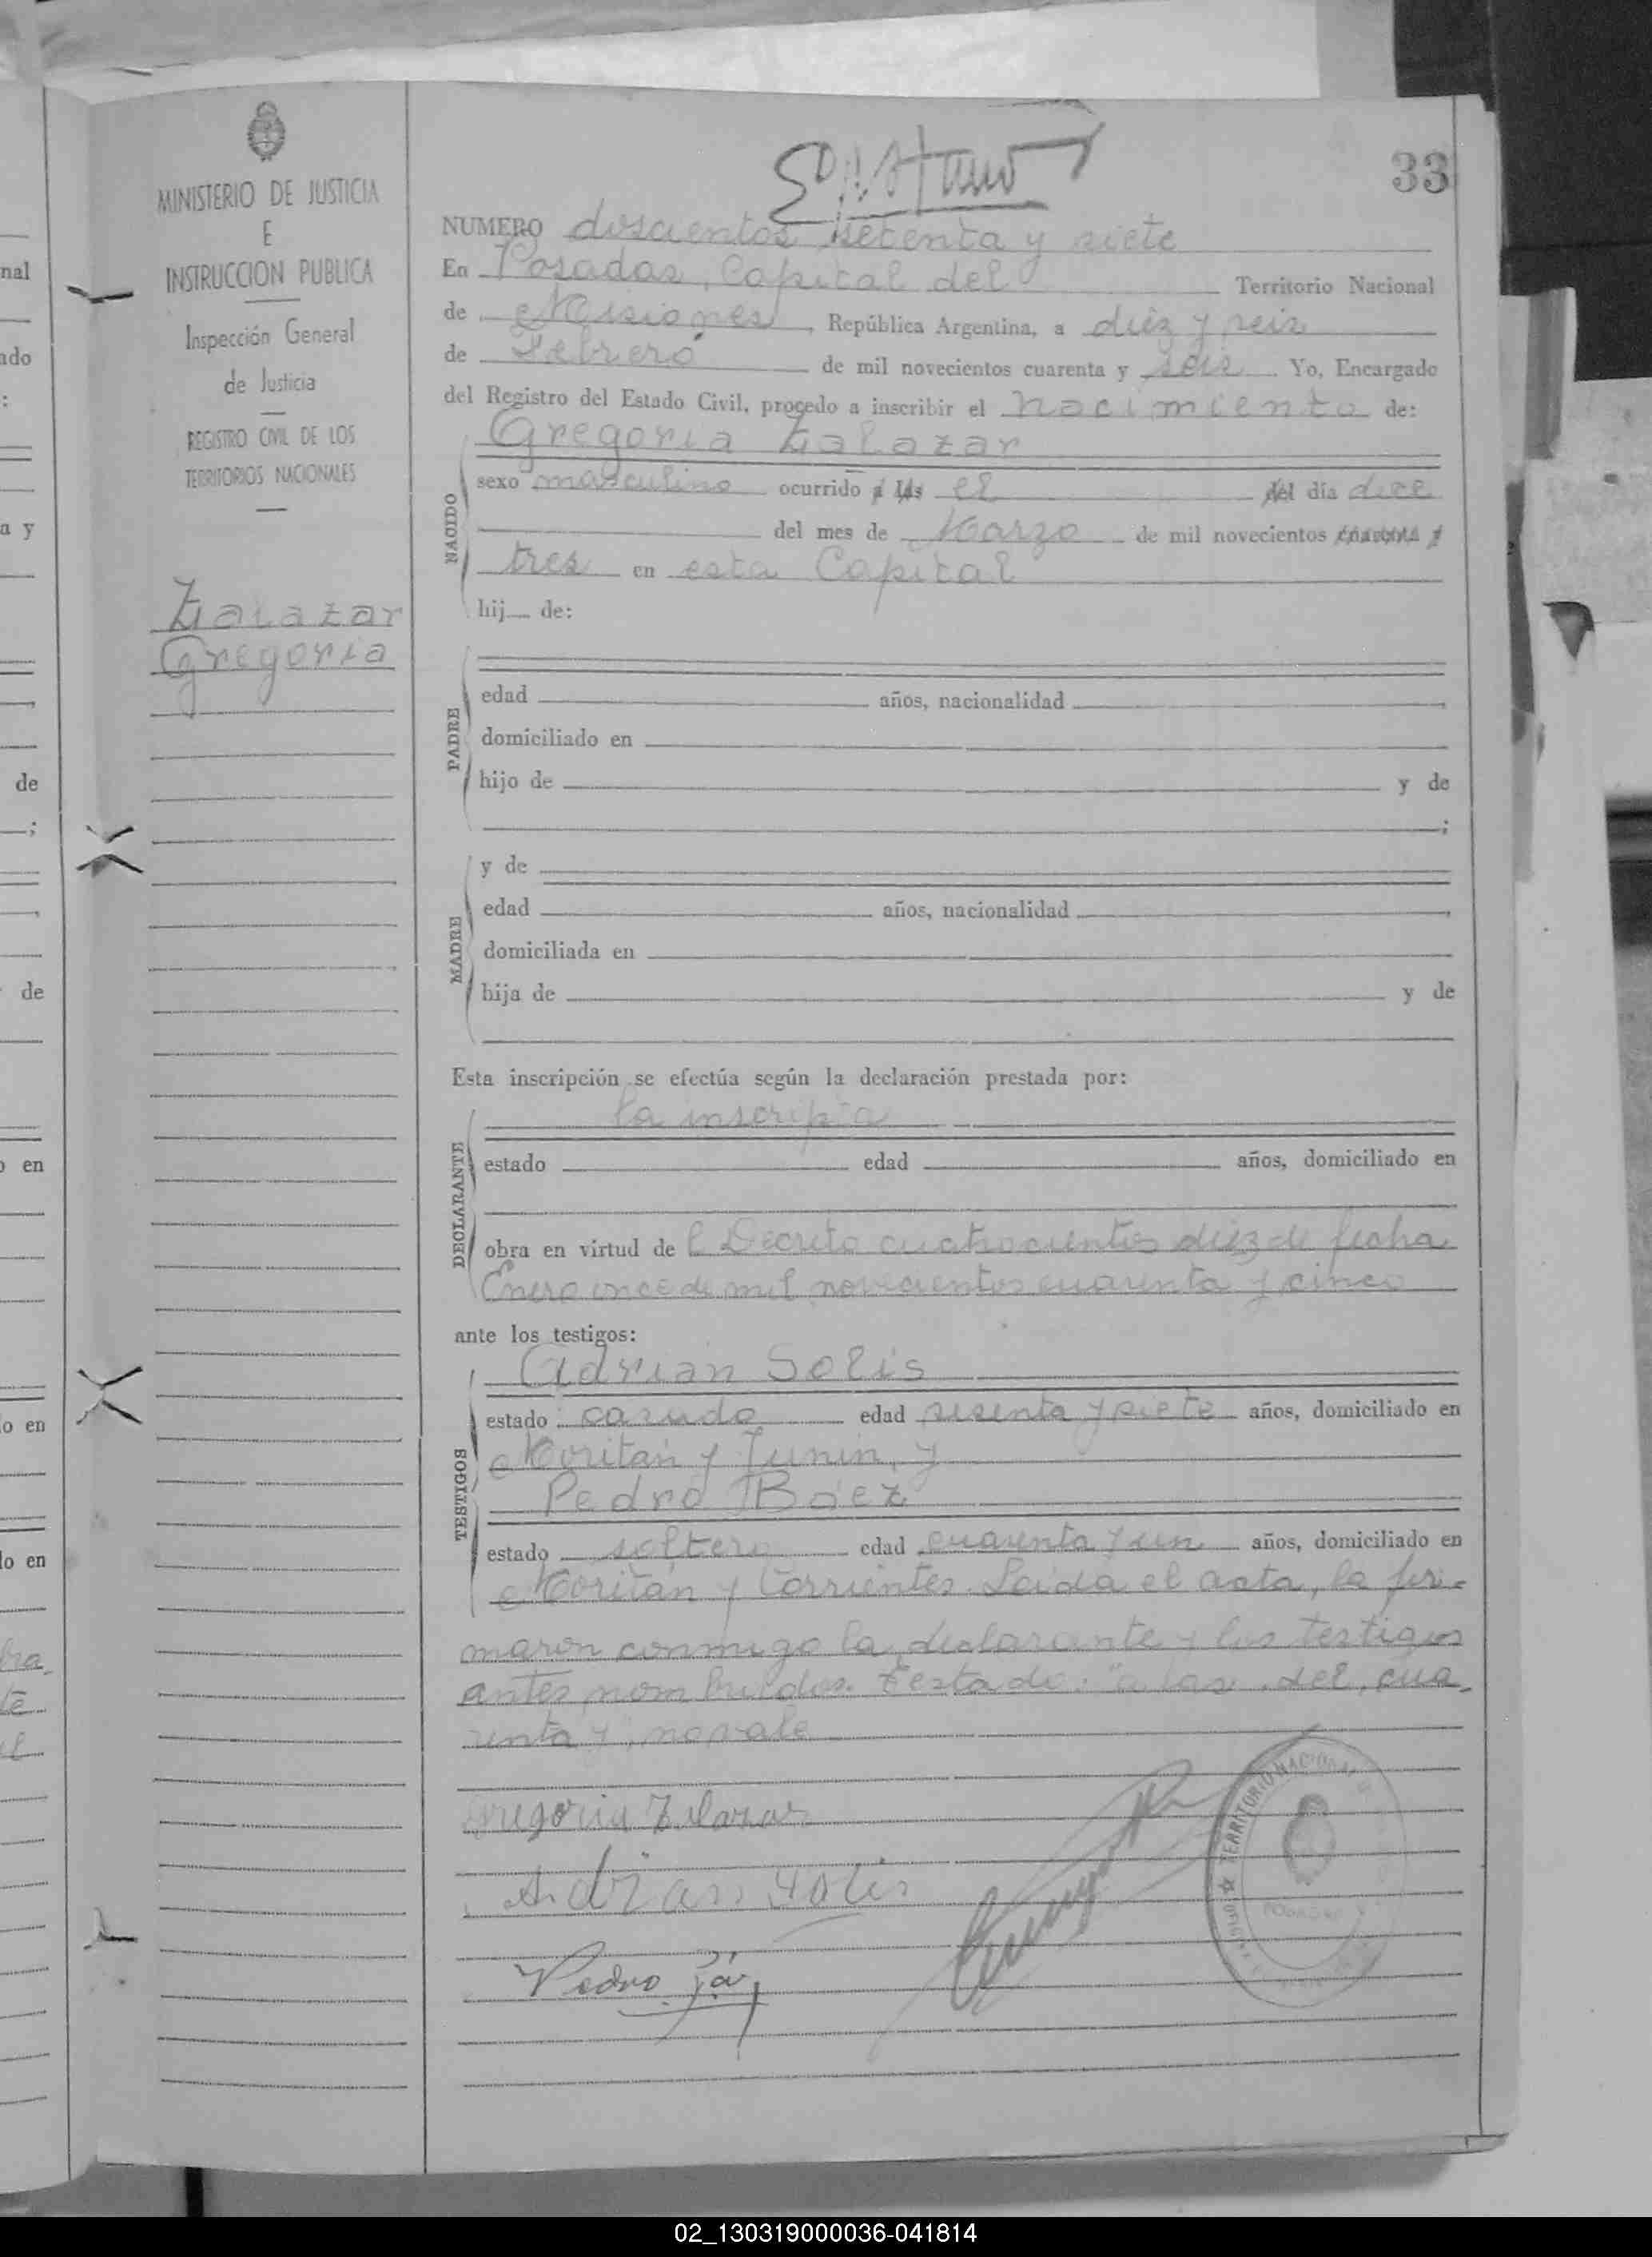 33
MINISTERIO DE JUSTICIA
E
INSTRUCCION PUBLICA
Inspección General
de Justicia
REGISTRO CIVIL DE LOS
TERRITORIOS NACIONALES
Zalazar
Gregoria
NUMERO doscientos setenta y siete
En Posadas, Capital del Territorio Nacional
de Misiones, República Argentina, a diez y seis
de Febrero de mil novecientos cuarenta y seis Yo, Encargado
del Registro del Estado Civil, procedo a inscribir el nacimiento de:
Gregoria Zalazar
NACIDO
sexo masculino ocurrido a las el del día doce
del mes de Marzo de mil novecientos cuarenta y
tres en esta Capital
hij de:
PADRE
edad años, nacionalidad
domiciliado en
hijo de y de
;
MADRE
y de
edad años, nacionalidad
domiciliada en
hija de y de
Esta inscripción se efectúa según la declaración prestada por:
DECLARANTE
la inscripta
estado edad años, domiciliado en
obra en virtud de l Decreto cuatrocientos diez de fecha
Enero once de mil novecientos cuarenta y cinco
ante los testigos:
TESTIGOS
Adrian Solis
estado casado edad sesenta y siete años, domiciliado en
Moritán y Junin, y
Pedro Báez
estado soltero edad cuarenta y un años, domiciliado en
Moritán y Corrientes. Leida el acta, la fir-
maron conmigo la declarante y los testigos
antes nombrados. Testado: "a las, del, cua-
renta y", no vale
Gregoria Zalazar
Adrian Solis
Pedro
TERRITORIO NACIONAL
POSADAS
nal
ado
:
a y
de
;
de
o en
o en
lo en
02_130319000036-041814